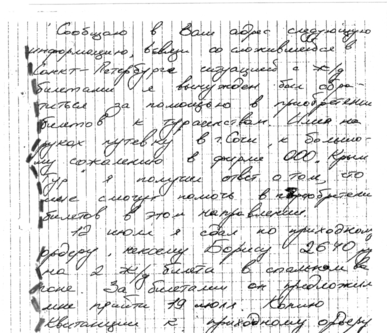 Сообщаю в Ваш адрес следующую
информацию, в связи со сложившейся в
Санкт-Петербурге ситуацией с ж/д
билетами я вынужден был обра-
титься за помощью в приобретении
билетов к турагенствам. Имея на
руках путевку в г. Сочи, к большо-
му сожалению в фирме ООО "Крым
Тур" я получил ответ о том, что
мне смогут помочь в приобретении
билетов в этом направлении.
12 июля я сдал по приходному
ордеру, некоему Борису 2640 р
на 2 ж/д билета в спальном ва
гоне. За билетами он предложил
мне прийти 19 июля. Копию
квитанции к приходному ордеру